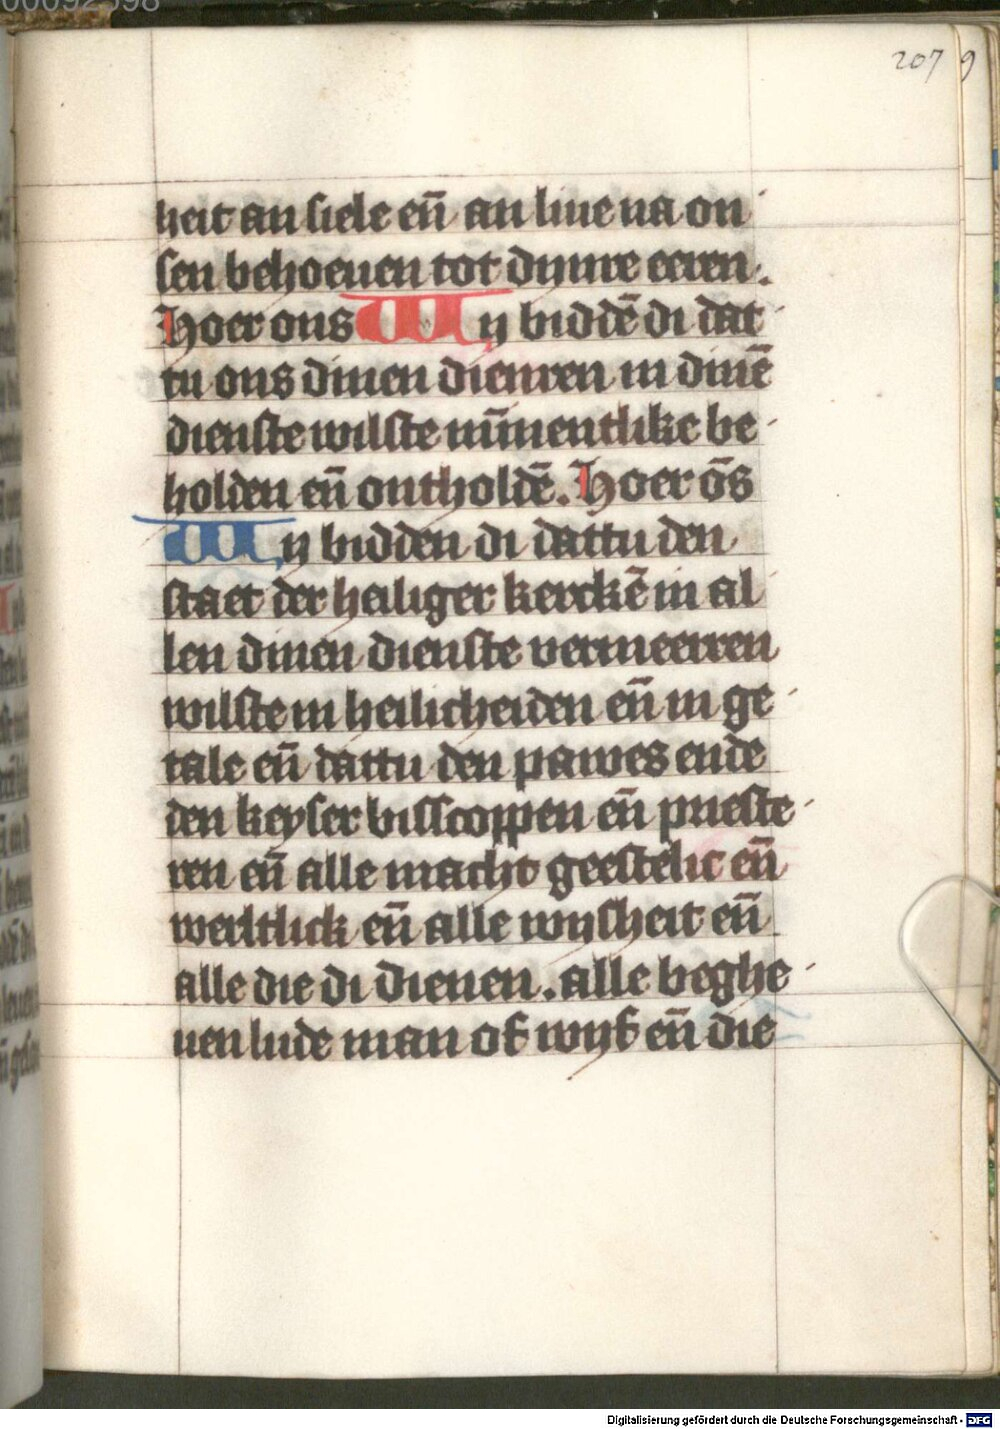 207 9
heit an siele en̄ an liue na on
sen behoeuen tot dynre eeren.
Hoer ons Wy biddē di dat
tu ons dinen dienren in dinē
dienste wilste
holden en̄ ontholdē. Hoer ōs
Wy bidden di dattu den
staet der heiliger kerckē in al
len dinen dienste vermeerren
wilste in heilicheiden en̄ in ge
tale en̄ dattu den pawes ende
den keyser bisscoppen en̄ prieste
ren en̄ alle macht geestelic en̄
werltlick en̄ alle wijsheit en̄
alle die di dienen. alle beghe
uen lude man of wijf en̄ die
Digitalisierung gefördert durch die Deutsche Forschungsgemeinschaft - DFG